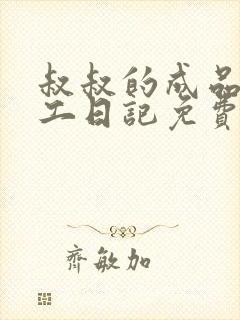 叔叔的成品
工日記免費
齊敏加